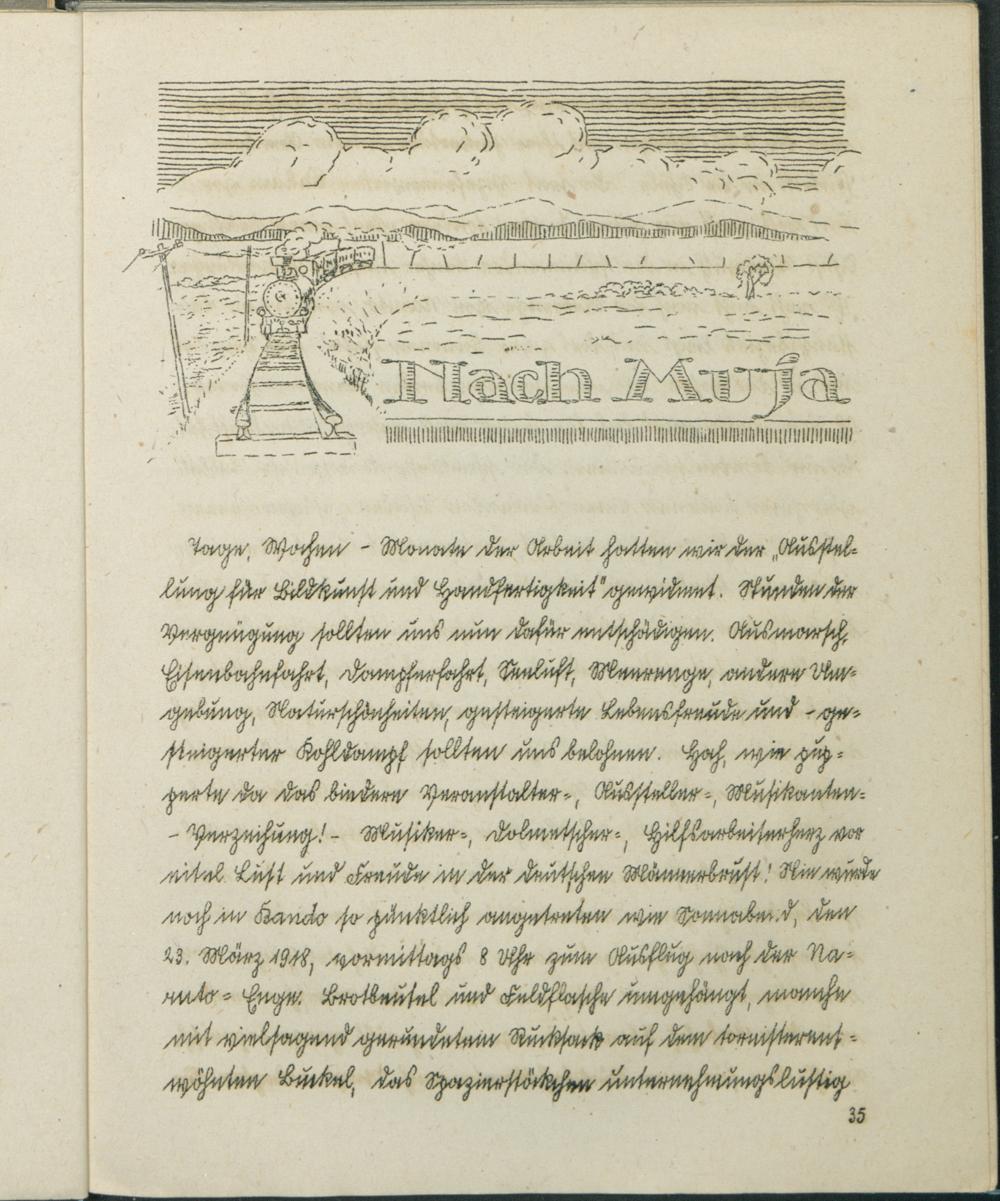 Nach Muja
Tage, Wochen - Monate der Arbeit hatten wir der „Ausstel-
lung für Bildkunst und Handfertigkeit" gewidmet. Stunden der
Vergnügung sollten uns nun dafür entschädigen. Ausmarsch,
Eisenbahnfahrt, Dampferfahrt, Seeluft, Meerenge, andere Um-
gebung, Naturschönheiten, gesteigerte Lebensfreude und - ge-
steigerter Kohldampf sollten uns belohnen. Hah, wie pup-
perte da das biedere Veranstalter-, Aussteller-, Musikanten-
- Verzeihung! - Musiker-, Dolmetscher-, Hilfsarbeiterherz vor
eitel Lust und Freude in der deutschen Männerbrust! Nie wurde
noch in Bando so pünktlich angetreten wie Sonnabend, den
23. März 1918, vormittags 8 Uhr zum Ausflug nach der Na-
ruto-Enge. Brotbeutel und Feldflasche umgehängt, manche
mit vielsagend gerundetem Rucksack auf dem tornisterent-
wöhnten Buckel, das Spazierstöckchen unternehmungslustig
35